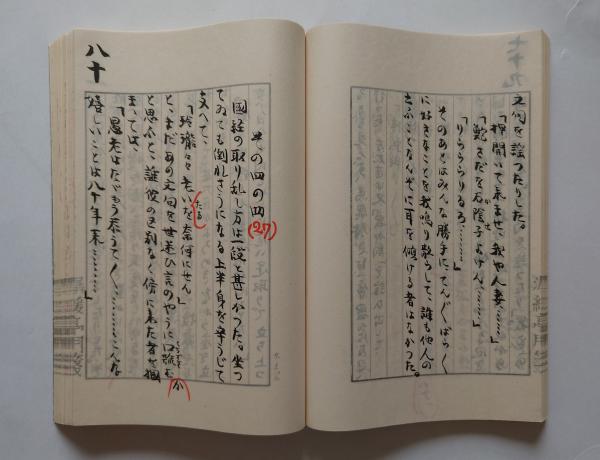 七十九
文句を謡つたりした。
「押開いて来ませ、我や人妻……」
「鮑さだをか石陰子よけん、……」
かせ
「りららりるろ、………」
そのあとはみんな勝手にてんでんばらく
に好きなことを我鳴り散らして、誰も他人の
云ふことなんぞに耳を傾ける者はなかつた。
八十
その四の四
(27)
國経の取り乱し方は一段と甚しかつた。坐つ
てゐても倒れさうになる上半身を辛うじて
支へて、
「玲瓏々々老いを奈何にせん」
たる
と、まだあの文句を世迷ひ言のやうに口號む
か
と思ふと、誰彼の区別なく傍に来た者を掴
まへては、
「愚老はたゞもう忝うてく、……こんな
嬉しいことは八十年来………」